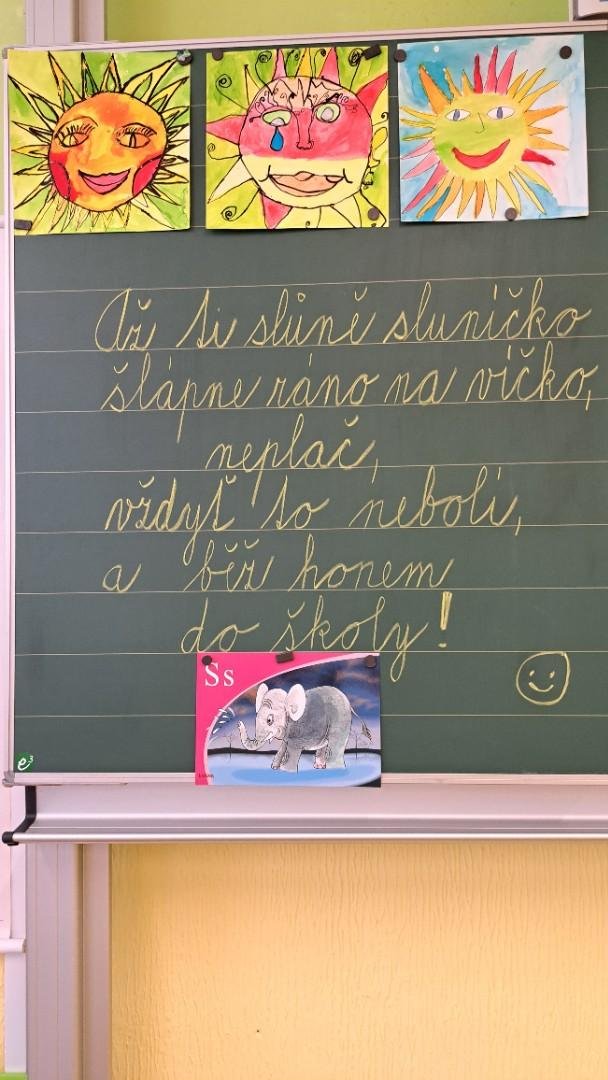 Až ti slůně sluníčko
šlápne ráno na víčko,
neplač,
vždyť to nebolí,
a běž honem
do školy!
Ss
e³